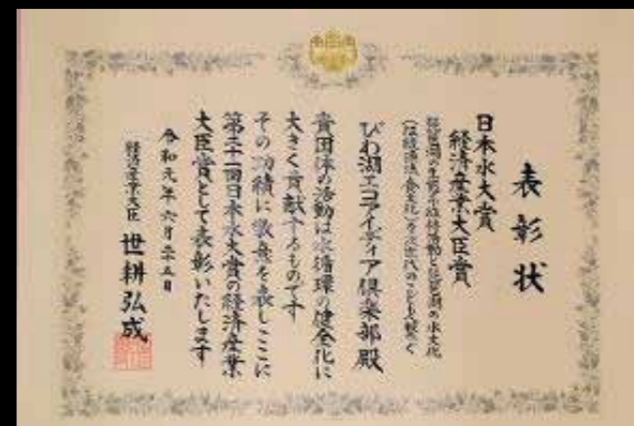 表彰状
日本水大賞
経済産業大臣賞
琵琶湖の生態系維持活動と琵琶湖の水文化
を次世代のこども達へ繋ぐ
びわ湖エコアイディア倶楽部殿
貴団体の活動は水循環の健全化に
大きく貢献するものです
その功績に敬意を表しここに
第二十一回日本水大賞の経済産業
大臣賞として表彰いたします
令和元年六月二五日
経済産業大臣 世耕弘成